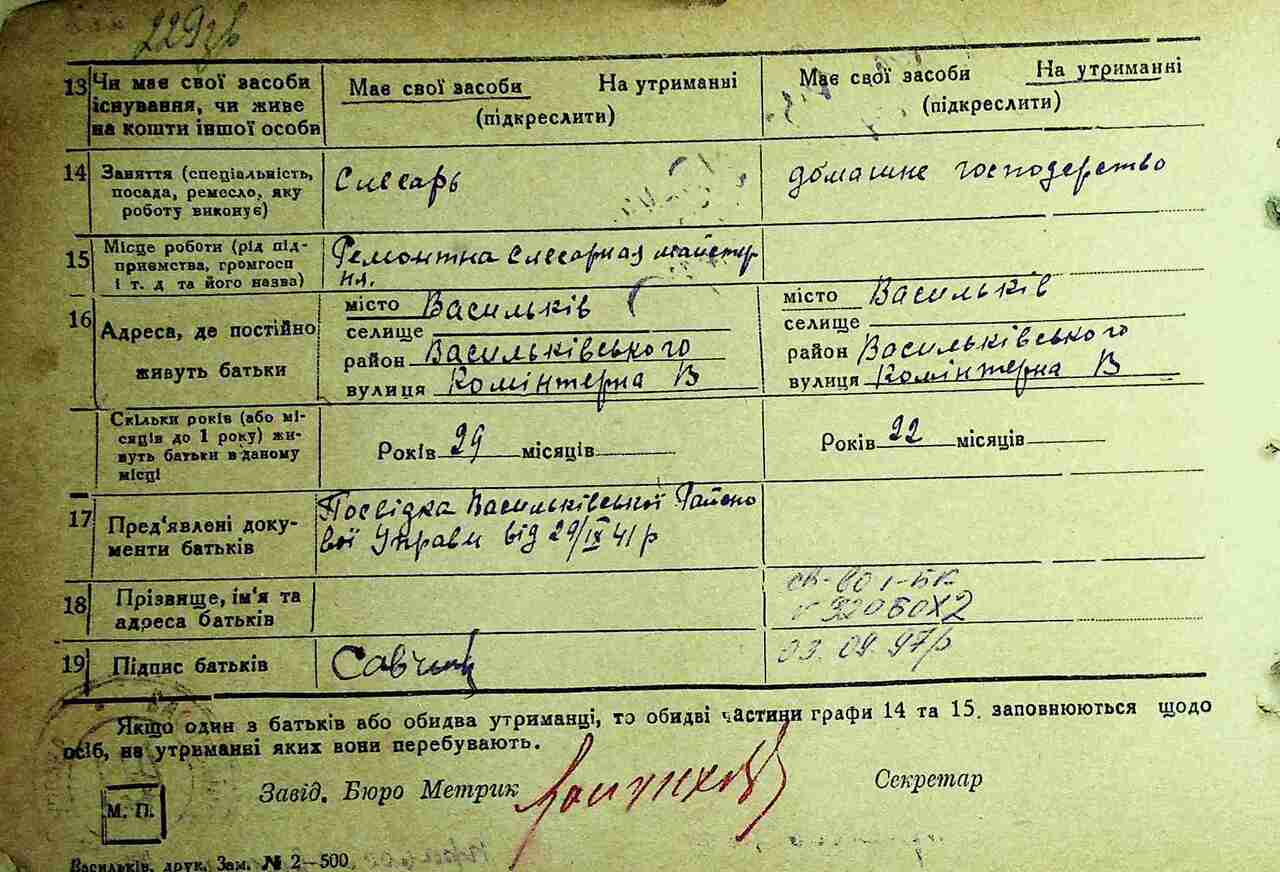 229зв
13 Чи має свої засоби існування, чи живе на кошти іншої особи
Має свої засоби На утриманні
(підкреслити)
Має свої засоби На утриманні
(підкреслити)
14 Заняття (спеціальність,
посада, ремесло, яку
роботу виконує)
Слесарь
домашнє господарство
15 Місце роботи (рід під-
приємства, громгосп
і т. д та його назва)
Ремонтна слесарная майстер
ня.
16 Адреса, де постійно
живуть батьки
місто Васильків
селище
район Васильківського
вулиця Комінтерна В
місто Васильків
селище
район Васильківського
вулиця Комінтерна В
Скільки років (або мі-
сяців до 1 року) жи-
вуть батьки в даному
місці
Років 29 місяців
Років 22 місяців
17 Пред'явлені доку-
менти батьків
Посвідка Васильківської Районо
вої Управи від 29/IX 41 р
18 Прізвище, ім'я та
адреса батьків
19 Підпис батьків
Савчик
03.09.97р
Якщо один з батьків або обидва утриманці, то обидві частини графи 14 та 15. заповнюються щодо
осіб, на утриманні яких вони перебувають.
Завід. Бюро Метрик
Секретар
М. П.
Васильків, друк. Зам. № 2—500